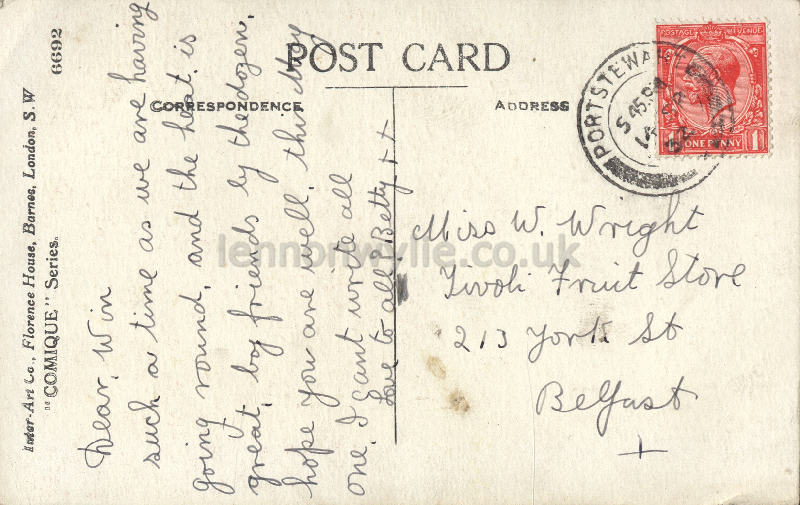 POST CARD
CORRESPONDENCE
ADDRESS
Dear, Win
such a time as we are having
going round, and the heat is
great, boy friends by the dozen.
hope you are well, this
one. I cant write all
Love to all? Betty. xx
Miss W. Wright
Tivoli Fruit Store
213 York St
Belfast
PORTSTEWART
POSTAGE REVENUE
ONE PENNY
1
Inter-Art Co., Florence House, Barnes, London, S.W
"COMIQUE" Series.
6692
lennonwylie.co.uk